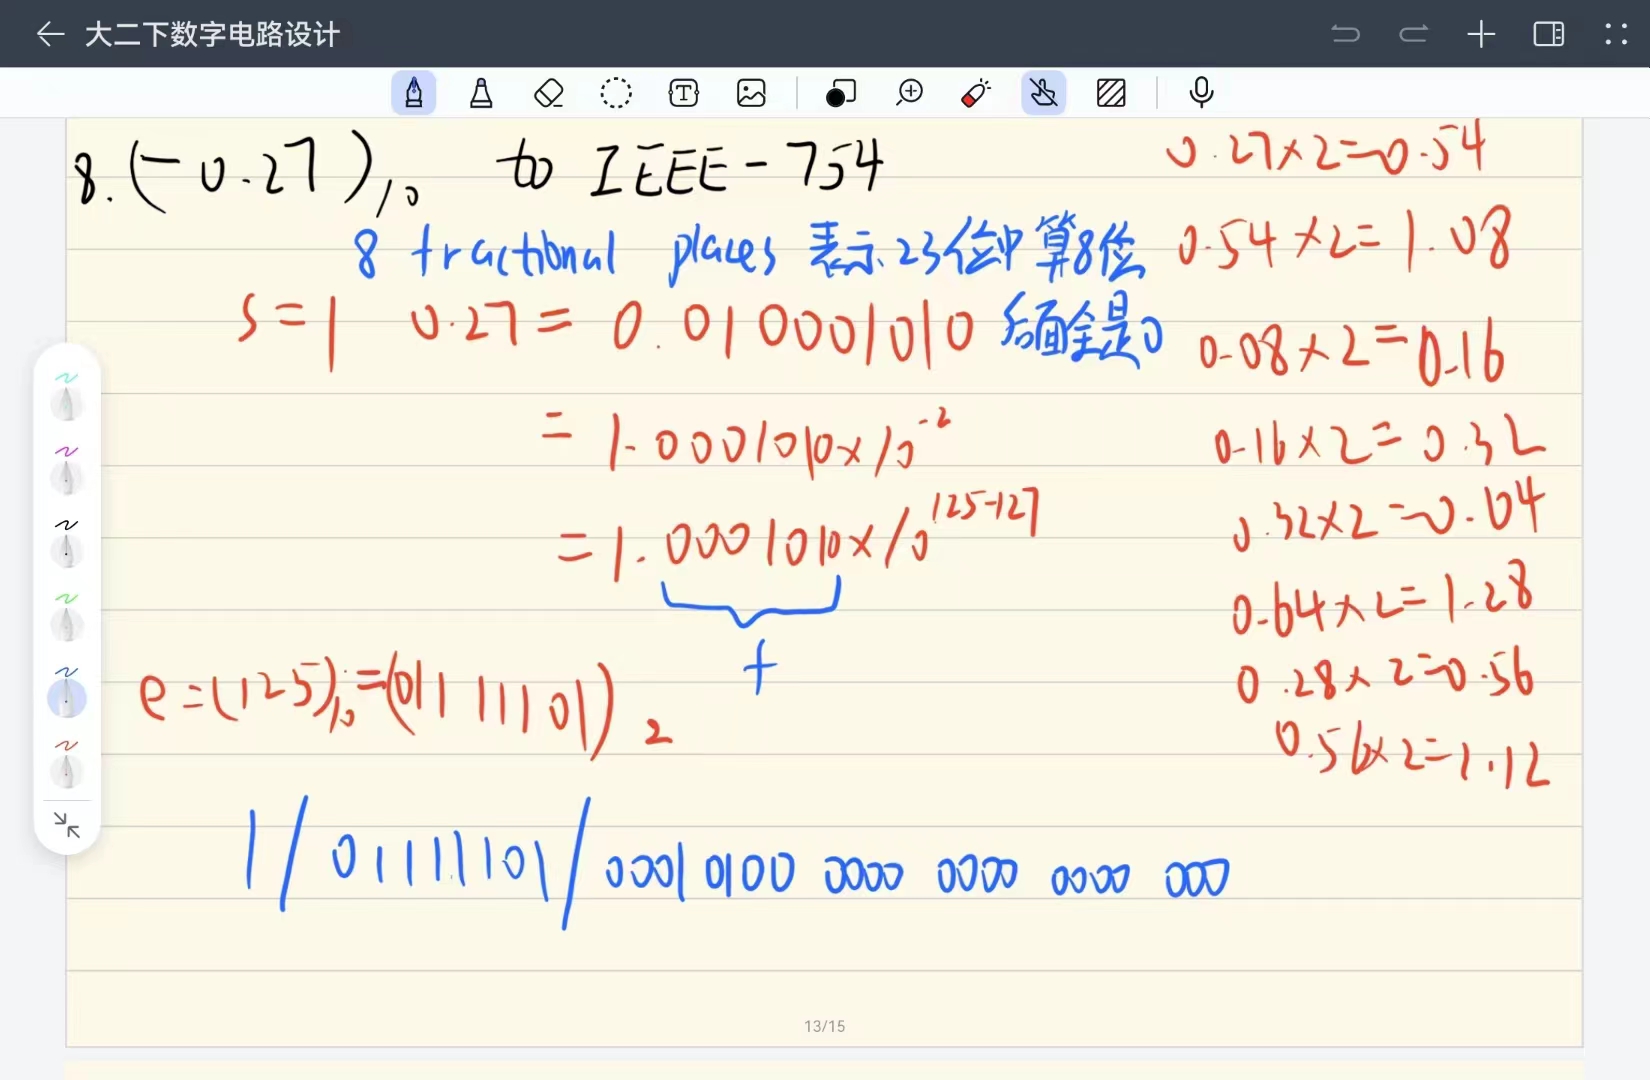 大二下数字电路设计
8. (-0.27)₁₀ to IEEE-754
8 fractional places 表示23位中算8位
S=1 0.27= 0.010001010 后面全是0
= 1.0001010×10⁻²
= 1.0001010×10¹²⁵⁻¹²⁷
f
e=(125)₁₀=(01111101)₂
1/01111101/0001 0100 0000 0000 0000 000
0.27×2=0.54
0.54×2=1.08
0.08×2=0.16
0.16×2=0.32
0.32×2=0.64
0.64×2=1.28
0.28×2=0.56
0.56×2=1.12
13/15